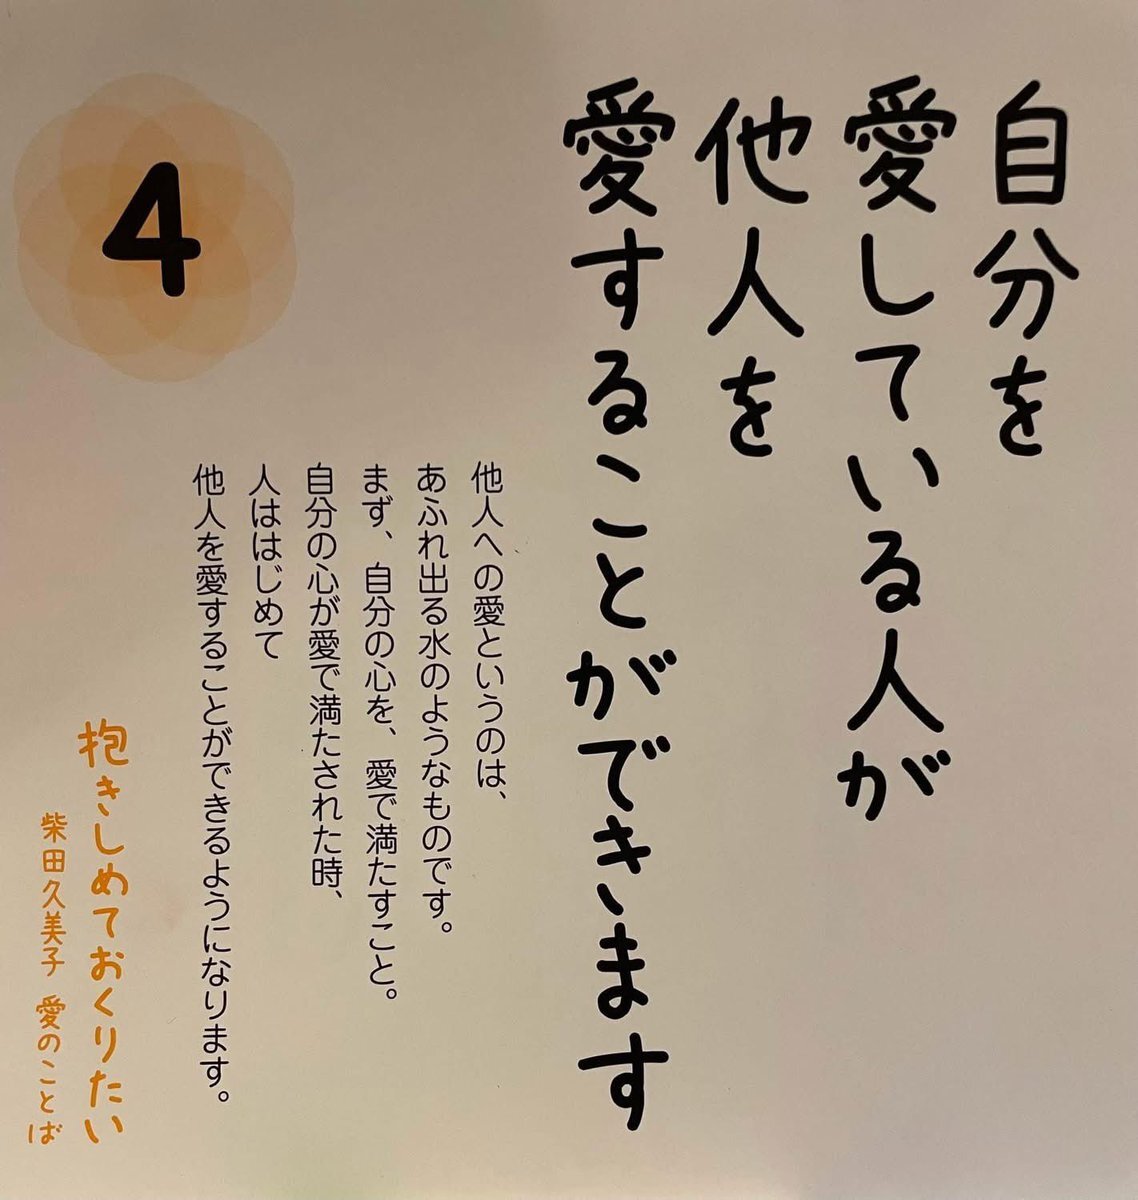 自分を
愛している人が
他人を
愛することができます
他人への愛というのは、
あふれ出る水のようなものです。
まず、自分の心を、愛で満たすこと。
自分の心が愛で満たされた時、
人ははじめて
他人を愛することができるようになります。
4
抱きしめておくりたい
柴田久美子 愛のことば